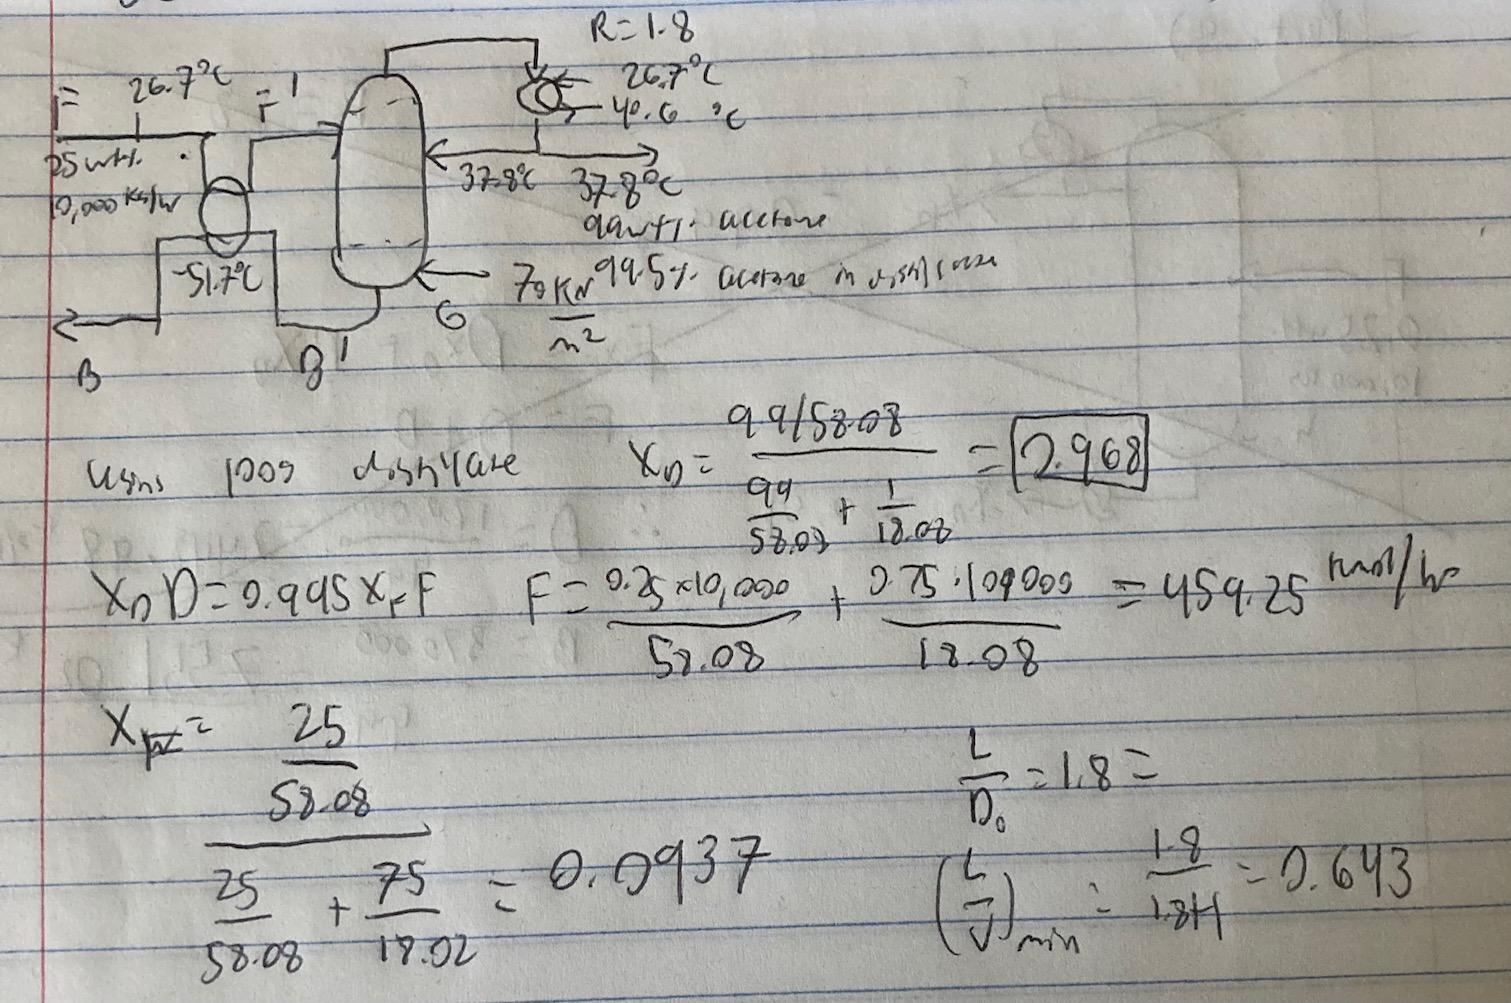 R=1.8
F= 26.7°C F'
26.7°C
40.6 °C
25 wt%.
10,000 kg/hr
37.8°C 37.8°C
99 wt%. acetone
-51.7°C
70 KN/m² 99.5%. acetone in distillate
G
B B'
using 100g distillate X_D = (99/58.08)/(99/58.08 + 1/18.08) = 0.968
X_D D = 0.995 X_F F F = (0.25×10,000)/58.08 + (0.75·10,000)/18.08 = 459.25 kmol/hr
X_F = (25/58.08)/(25/58.08 + 75/18.02) = 0.0937
L/D₀ = 1.8 =
(L/V)min = 1.8/(1.8+1) = 0.643